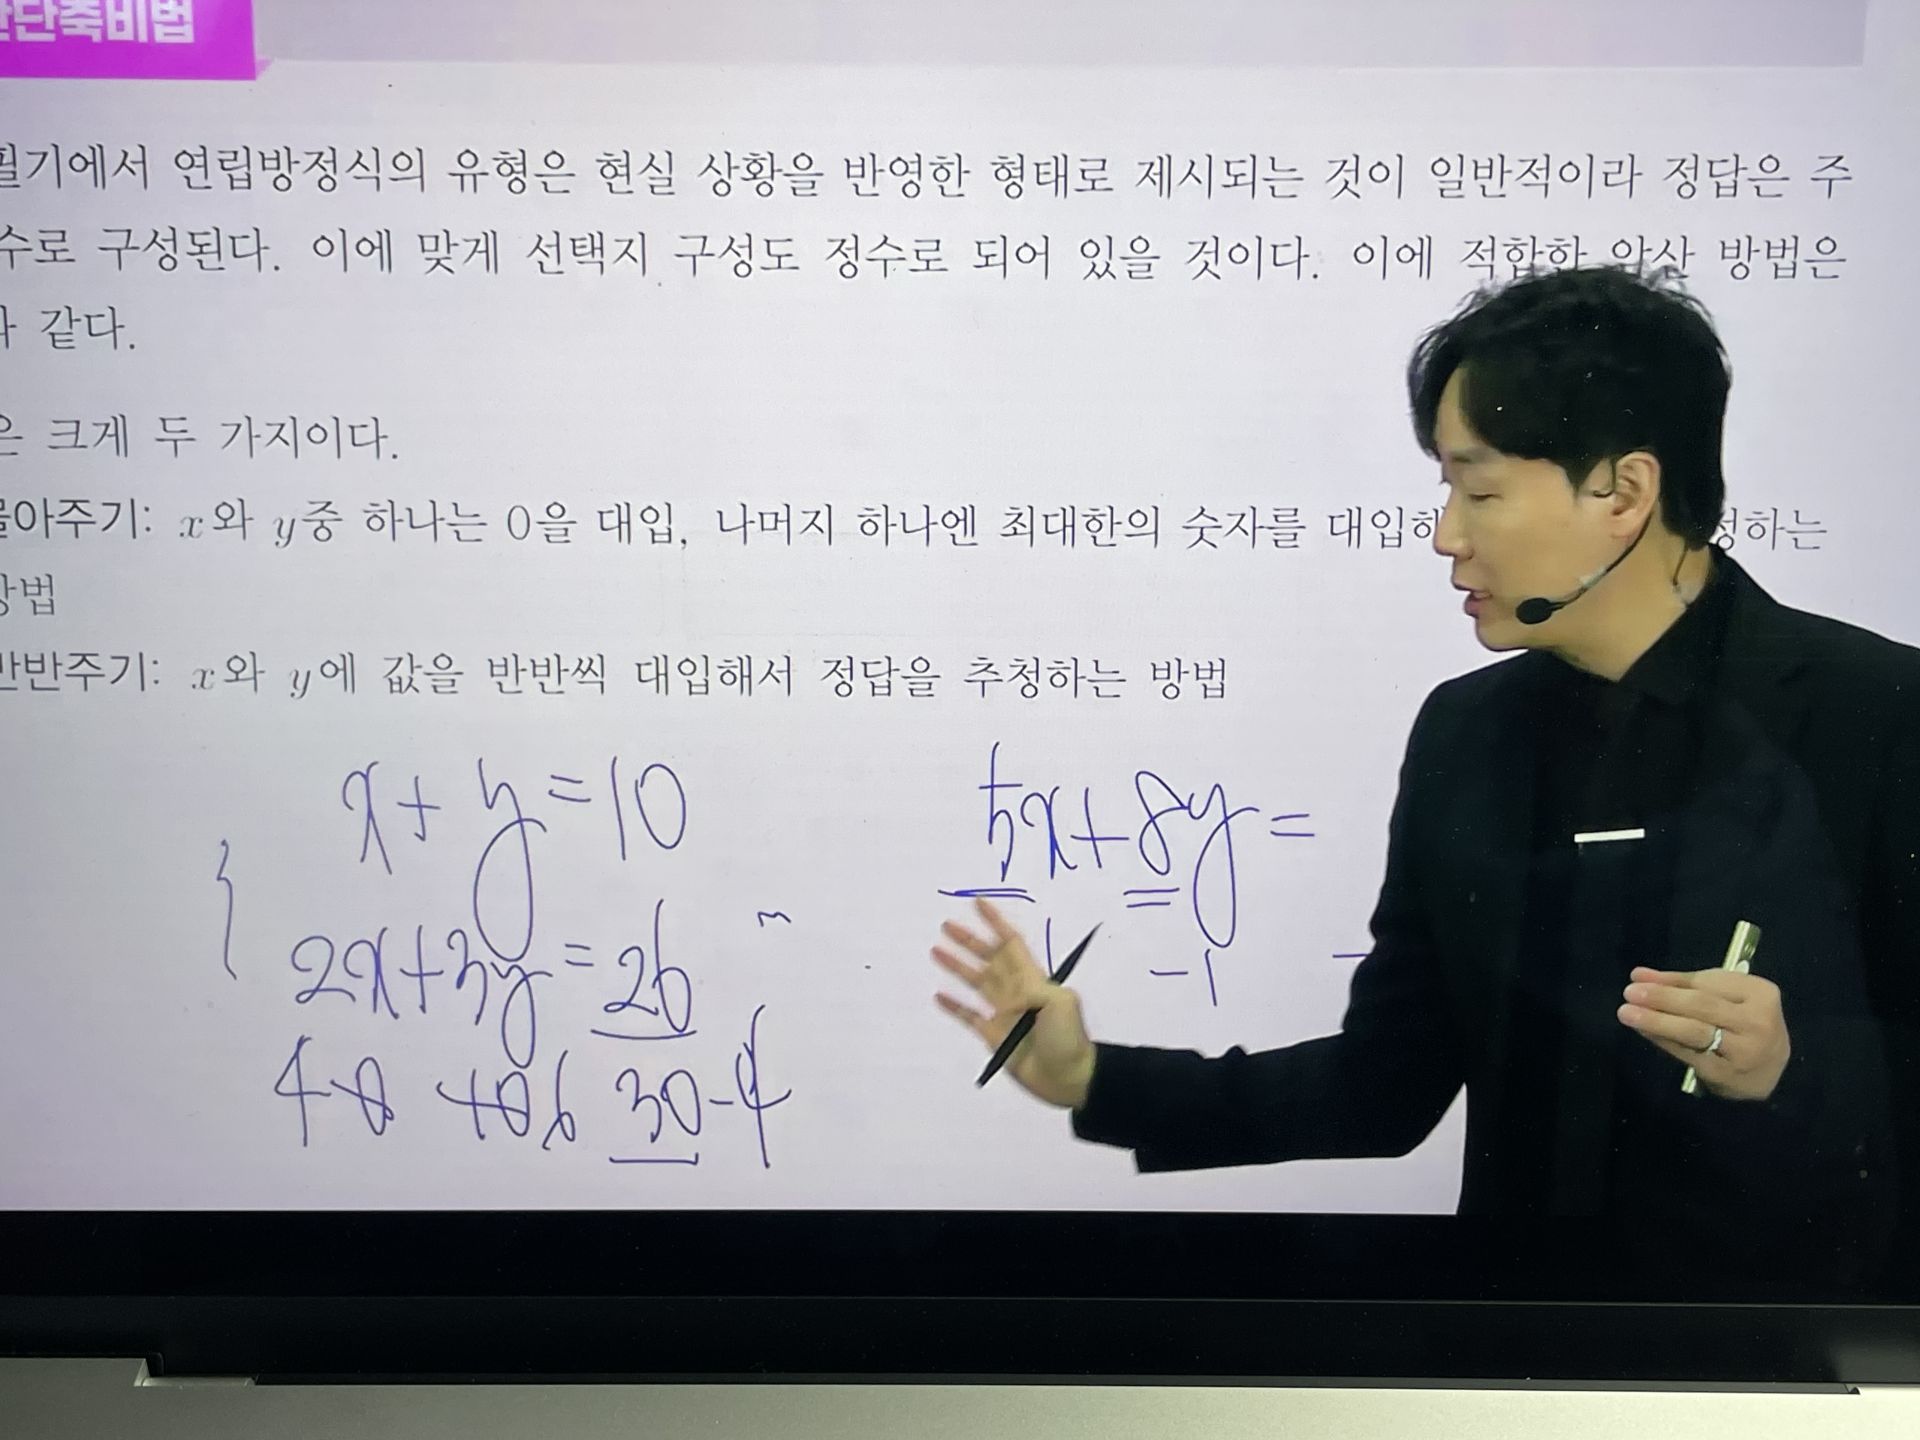 단축비법
필기에서 연립방정식의 유형은 현실 상황을 반영한 형태로 제시되는 것이 일반적이라 정답은 주
수로 구성된다. 이에 맞게 선택지 구성도 정수로 되어 있을 것이다. 이에 적합한 암산 방법은
같다.
은 크게 두 가지이다.
몰아주기: x와 y중 하나는 0을 대입, 나머지 하나엔 최대한의 숫자를 대입해 정하는
방법
반반주기: x와 y에 값을 반반씩 대입해서 정답을 추청하는 방법
x + y = 10
2x + 3y = 26
4 0 10 6 30 - 4
5x + 8y =
-1